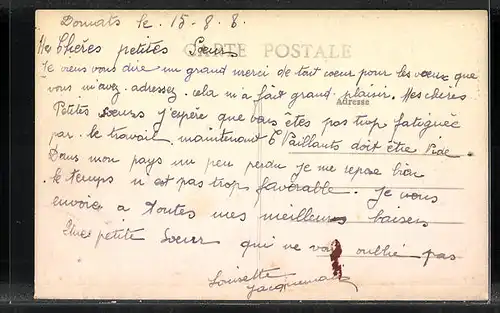 Domats le. 15-8-8.
CARTE POSTALE
Mes Chères petites Sœurs
Je viens vous dire un grand merci de tout cœur pour les vœux que
vous m'avez adressez. cela m'a fait grand plaisir. Mes chères
Adresse
Petites sœurs j'epère que vous êtes pas trop fatiguée
par le travail, maintenant Vaillants doit être vide.
Dans mon pays un peu perdu je me repose bien
le temps n est pas trop favorable. Je vous
envoie a toutes mes meilleurs baisers
Une petite Sœur qui ne vous oublié pas
Louisette
Jacquemain